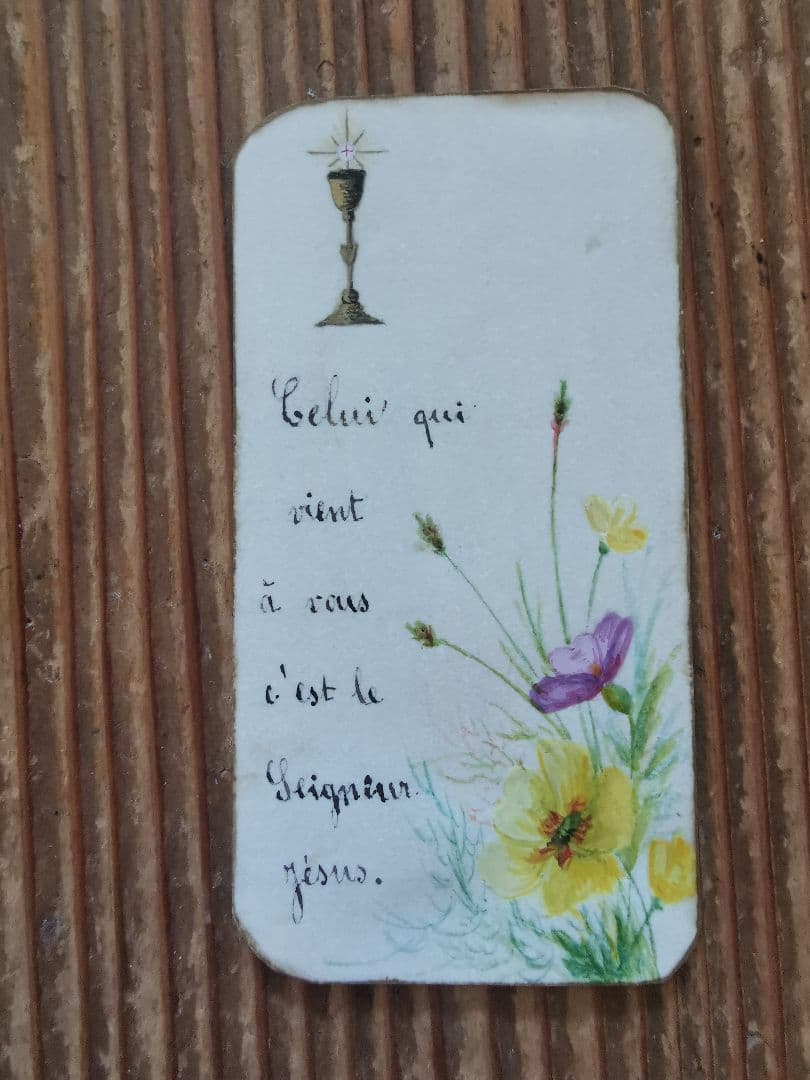 Celui qui
vient
à vous
c'est le
Seigneur
Jésus.